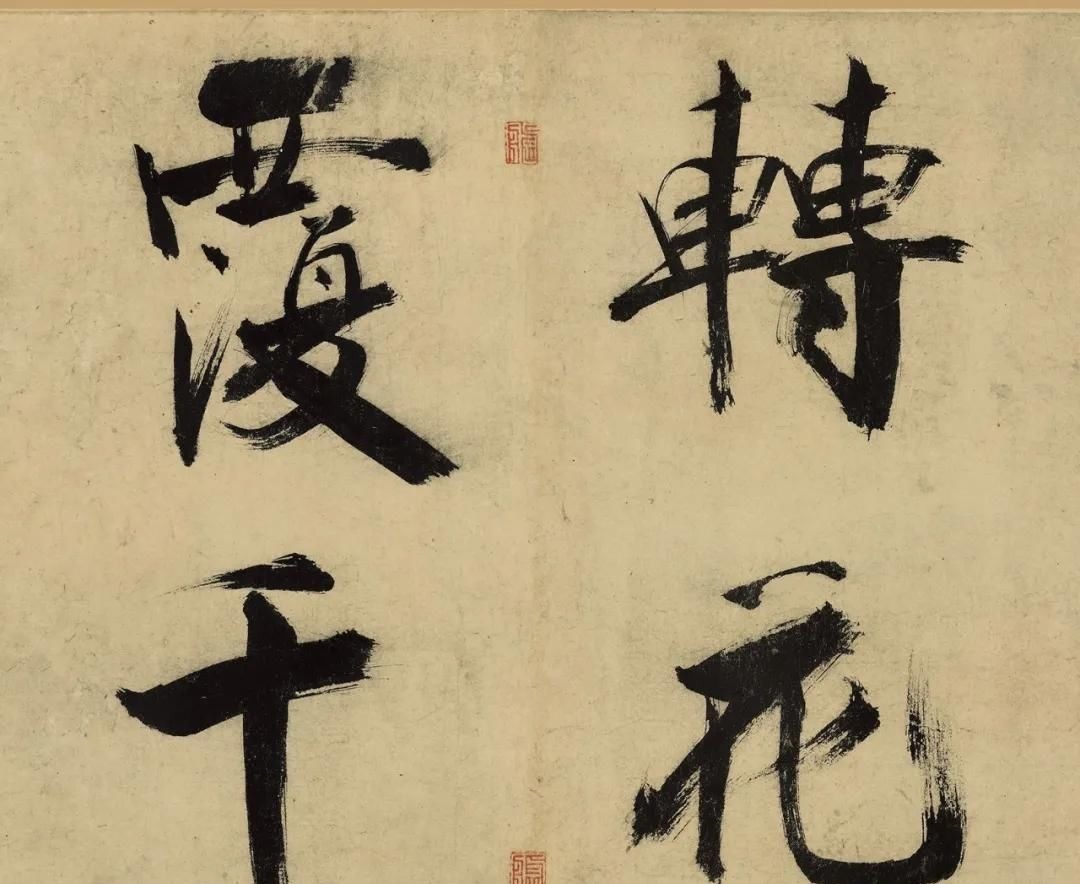 轉花
覆千